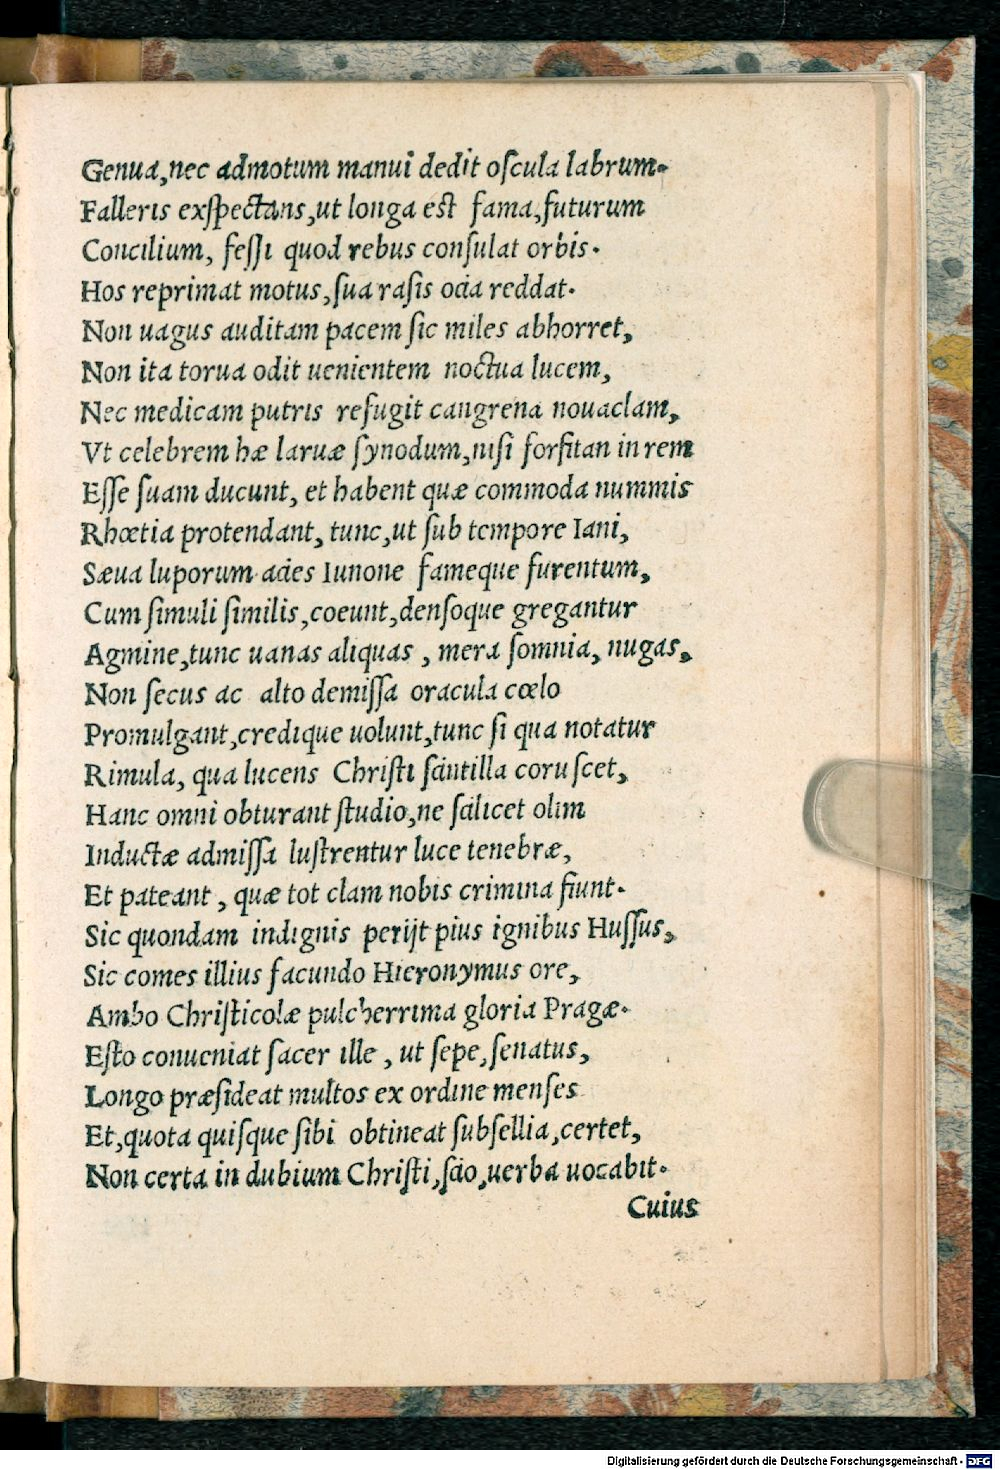 Genua,nec admotum manui dedit oſcula labrum.
Falleris exſpectans,ut longa est fama,futurum
Concilium, feſſi quod rebus conſulat orbis.
Hos reprimat motus,ſua raſis ocia reddat.
Non uagus auditam pacem ſic miles abhorret,
Non ita torua odit uenientem noctua lucem,
Nec medicam putris refugit cangrena nouaclam,
Vt celebrem hæ laruæ ſynodum,niſi forſitan in rem
Eſſe ſuam ducunt, et habent quæ commoda nummis
Rhœtia protendant, tunc,ut ſub tempore Iani,
Sæua luporum acies Iunone fameque furentum,
Cum ſimuli ſimilis,coeunt,denſoque gregantur
Agmine,tunc uanas aliquas , mera ſomnia, nugas,
Non ſecus ac alto demiſſa oracula cœlo
Promulgant,credique uolunt,tunc ſi qua notatur
Rimula, qua lucens Chriſti ſcintilla coruſcet,
Hanc omni obturant ſtudio,ne ſcilicet olim
Inductæ admiſſa luſtrentur luce tenebræ,
Et pateant , quæ tot clam nobis crimina fiunt.
Sic quondam indignis perijt pius ignibus Huſſus,
Sic comes illius facundo Hieronymus ore,
Ambo Chriſticolæ pulcherrima gloria Pragæ.
Eſto conueniat ſacer ille , ut ſepe,ſenatus,
Longo præſideat multos ex ordine menſes
Et,quota quiſque ſibi obtineat ſubſellia,certet,
Non certa in dubium Chriſti,ſcio,uerba uocabit.
Cuius
Digitalisierung gefördert durch die Deutsche Forschungsgemeinschaft - DFG